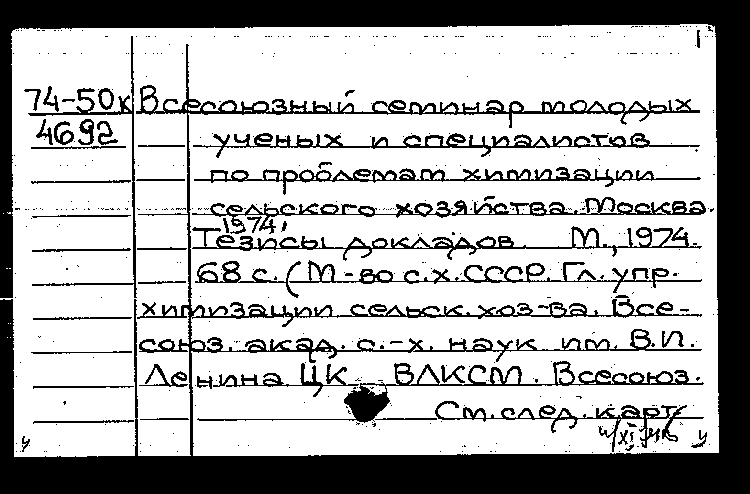 74-50к Всесоюзный семинар молодых
4692 ученых и специалистов
по проблемам химизации
сельского хозяйства. Москва.
1974.
Тезисы докладов. М., 1974.
68 с. (М-во с.х. СССР. Гл. упр.
химизации сельск. хоз-ва. Все-
союз. акад. с.-х. наук им. В.И.
Ленина ЦК ВЛКСМ. Всесоюз.
См. след. карт